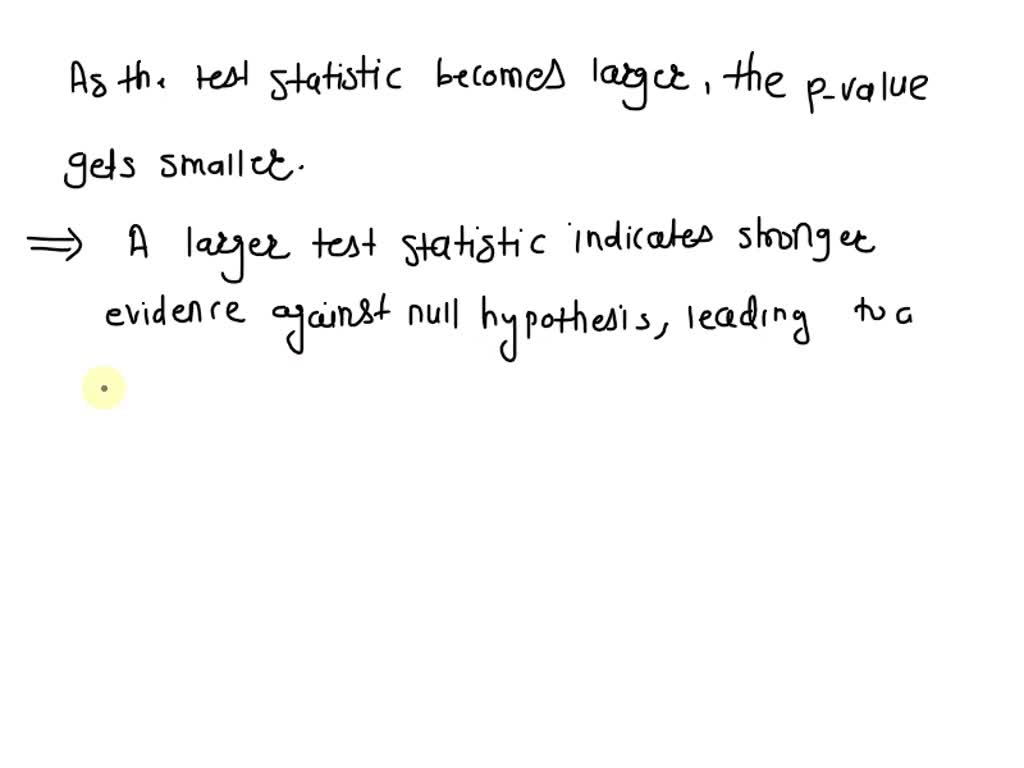 As the test statistic becomes larger, the p-value
gets smaller.
⇒ A larger test statistic indicates stronger
evidence against null hypothesis, leading to a